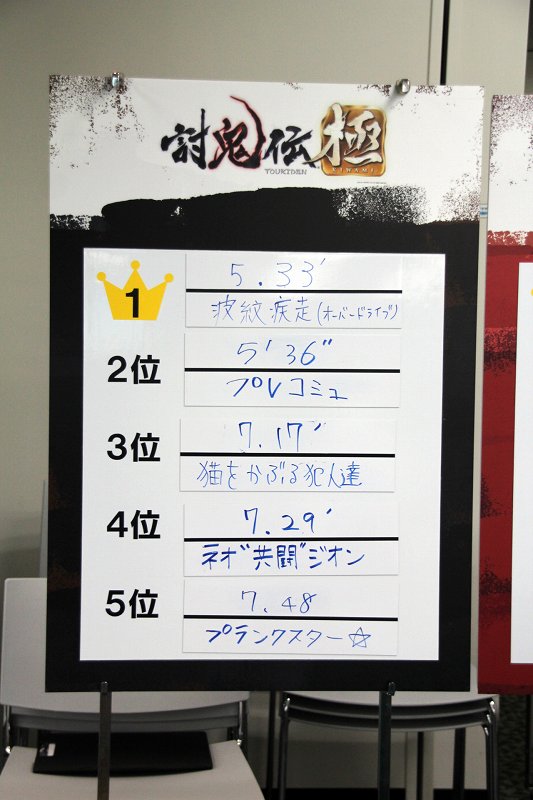 討鬼伝 極
TOUKIDEN KIWAMI
1
5.33'
波紋疾走(オーバードライブ)
2位
5'36"
プレコミュ
3位
7.17'
猫をかぶる犯人達
4位
7.29'
ネオ"共闘"ジオン
5位
7.48
プランクスター☆